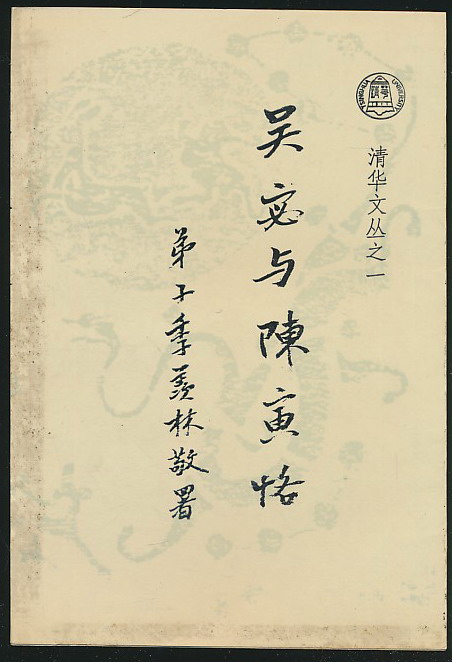 清华文丛之一
吴宓与陳寅恪
弟子季羨林敬署
TSINGHUA UNIVERSITY